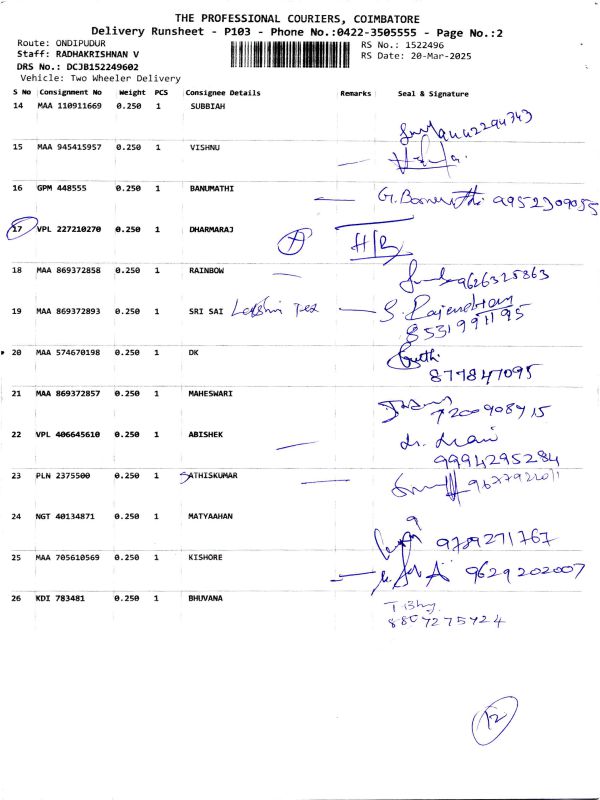 THE PROFESSIONAL COURIERS, COIMBATORE
Delivery Runsheet - P103 - Phone No.:0422-3505555 - Page No.:2
Route: ONDIPUDUR
Staff: RADHAKRISHNAN V
DRS No.: DCJB152249602
Vehicle: Two Wheeler Delivery
RS No.: 1522496
RS Date: 20-Mar-2025
S No Consignment No Weight PCS Consignee Details Remarks Seal & Signature
14 MAA 110911669 0.250 1 SUBBIAH
15 MAA 945415957 0.250 1 VISHNU
16 GPM 448555 0.250 1 BANUMATHI 9952309055
17 VPL 227210270 0.250 1 DHARMARAJ H/R
18 MAA 869372858 0.250 1 RAINBOW 9626325863
19 MAA 869372893 0.250 1 SRI SAI Lakshmi Tex S. Rajendran
8531991195
20 MAA 574670198 0.250 1 DK
877847095
21 MAA 869372857 0.250 1 MAHESWARI
7200908415
22 VPL 406645610 0.250 1 ABISHEK
9994295284
23 PLN 2375500 0.250 1 SATHISKUMAR
24 NGT 40134871 0.250 1 MATYAAHAN
9789271767
25 MAA 705610569 0.250 1 KISHORE 9629202007
26 KDI 783481 0.250 1 BHUVANA
8807275424
12